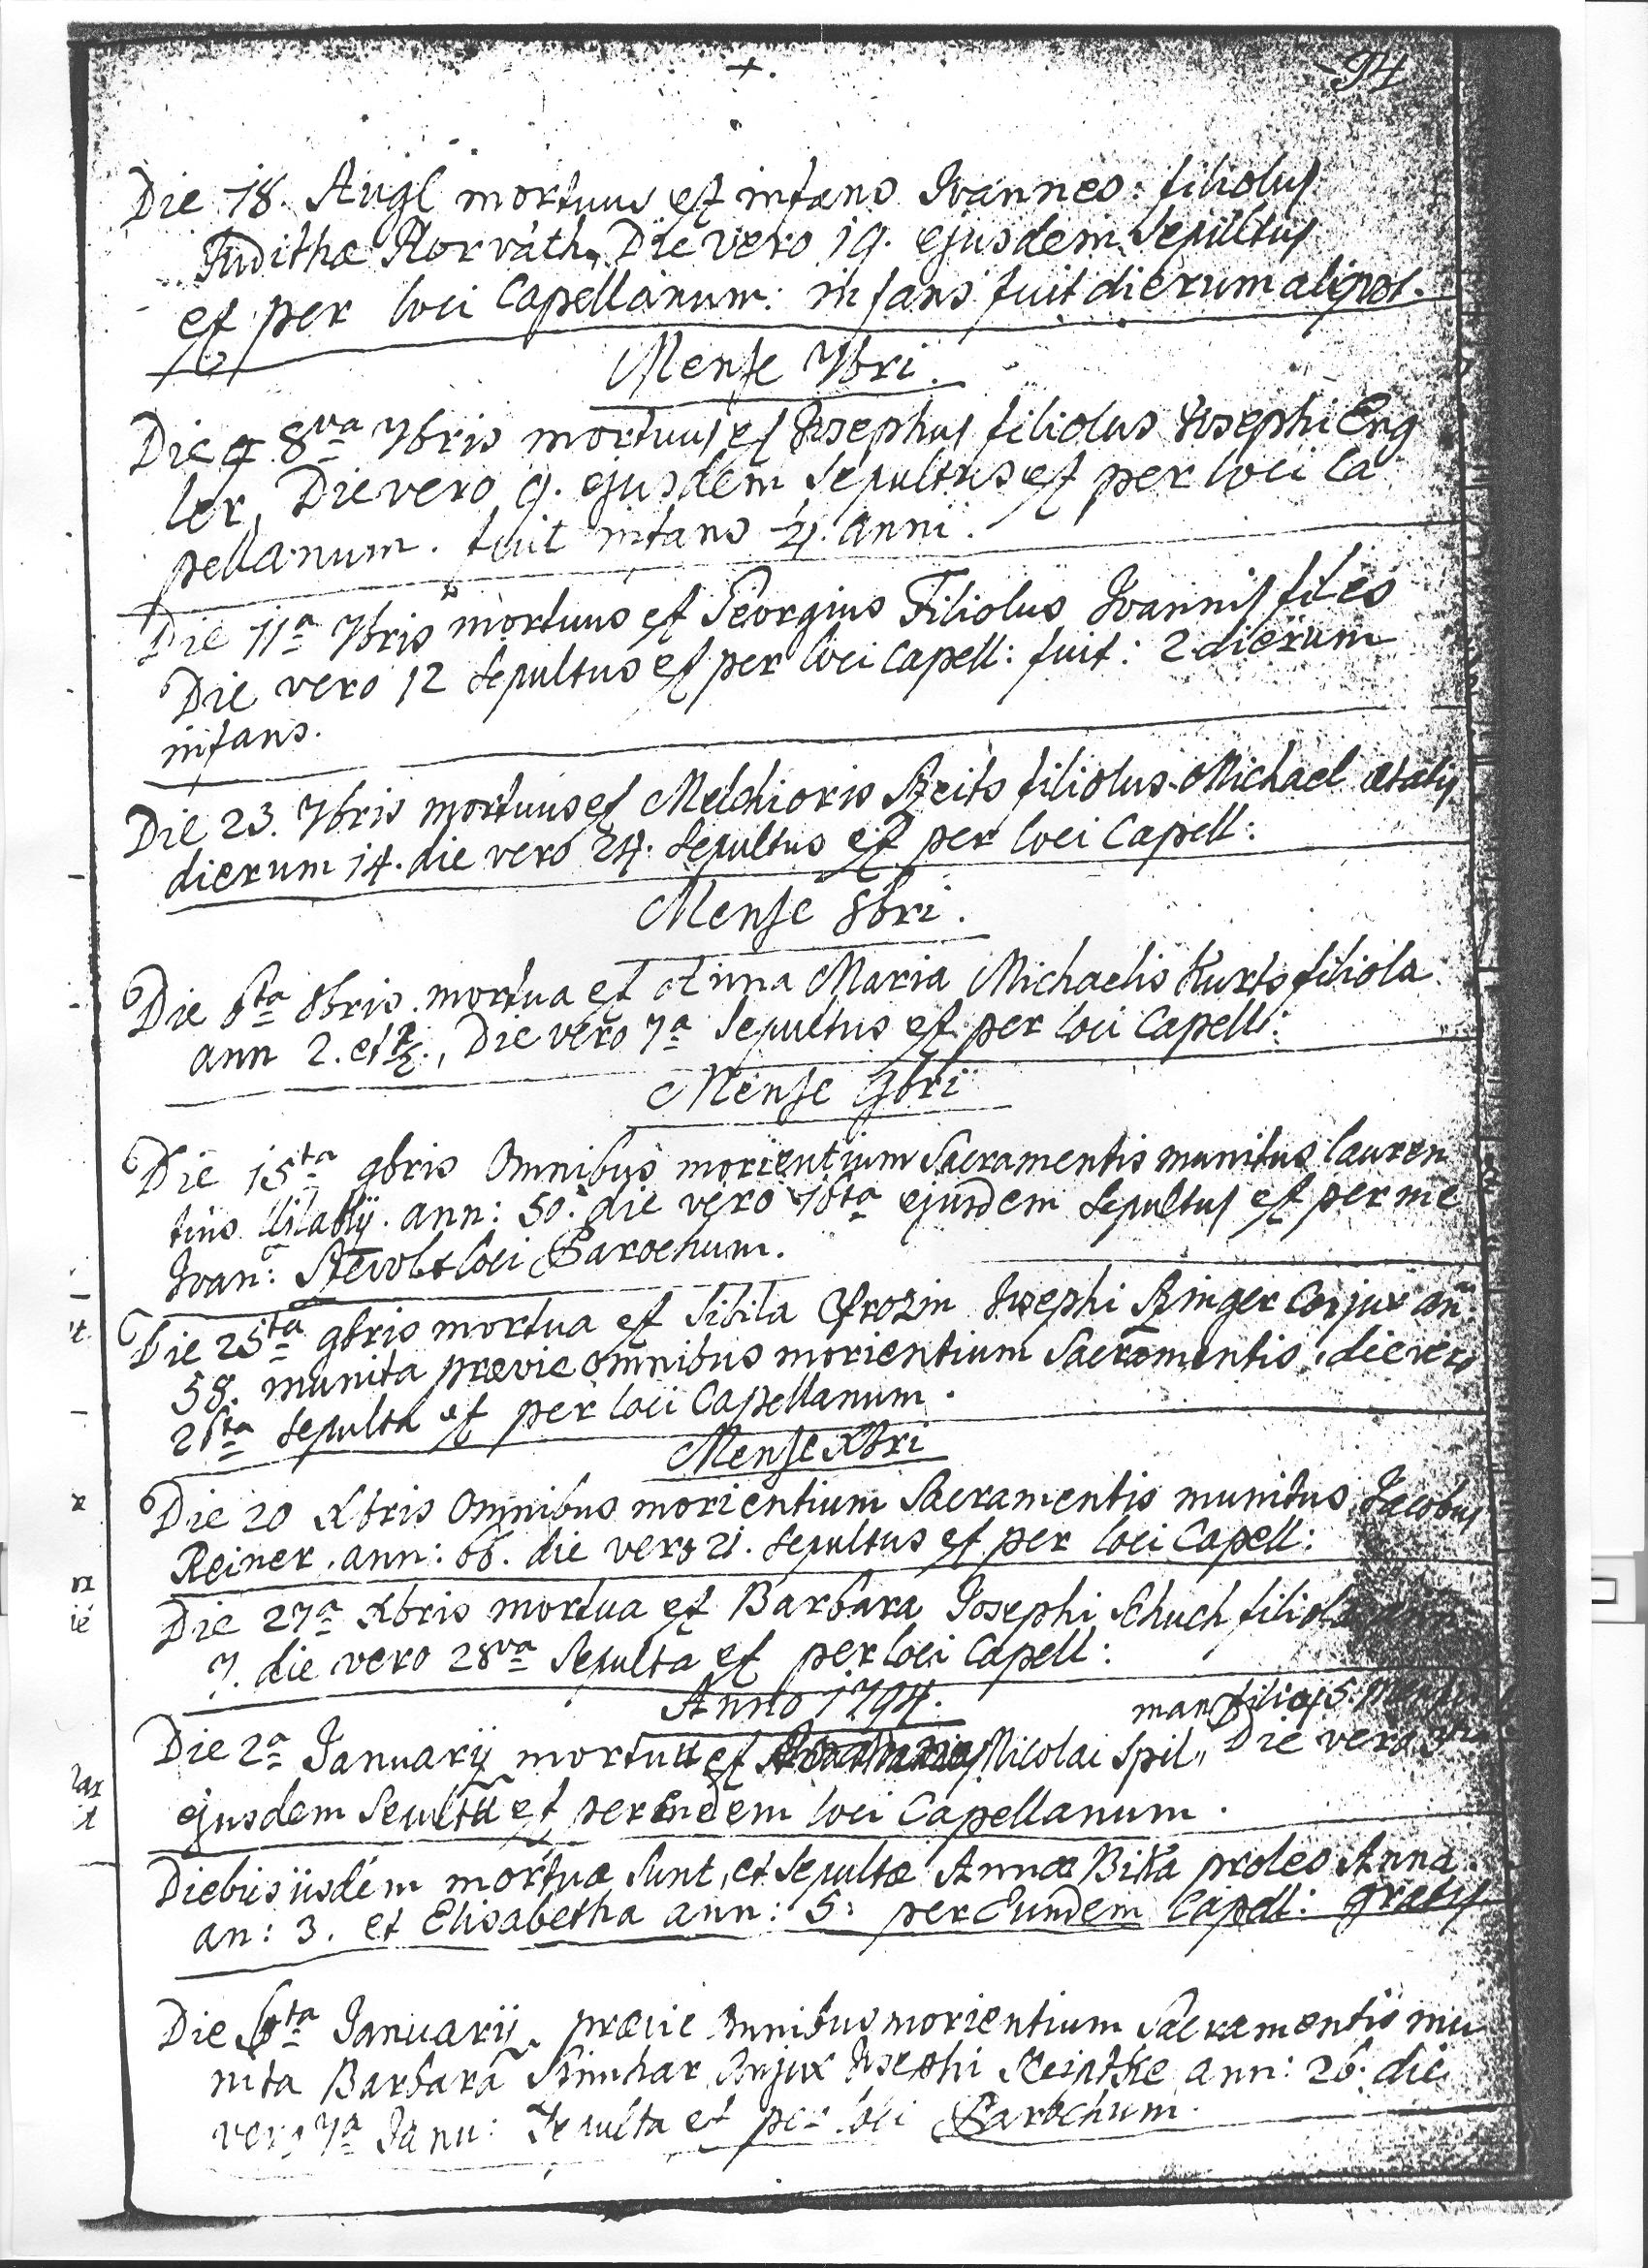 94
Die 18. Aug mortuus est infans Joannes filiolus
Judithæ Horváth, Die vero 19. ejusdem Sepultus
est per loci Capellanum: infans fuit dierum aliquot.
Mense 7bri.
Die 8va 7bris mortuus est Josephus filiolus Josephi Eng
ler, Die vero 9. ejusdem Sepultus est per loci Ca
pellanum. fuit infans anni.
Die 11a 7bris mortuus est Georgius Filiolus Joannis
Die vero 12 Sepultus est per loci Capell: fuit: 2 dierum
infans.
Die 23. 7bris mortuus est Melchioris filiolus Michael ætatis
dierum 14. die vero 24. Sepultus est per loci Capell:
Mense 8bri.
Die 6ta 8bris mortua est Anna Maria Michaelis Kurts filiola
ann 2. et Die vero 7a Sepultus est per loci Capell:
Mense 9bri
Die 15ta 9bris Omnibus morientium Sacramentis munitus Lauren
tius ann: 50. die vero 16ta ejusdem Sepultus est per me
Joan: loci Parochum.
Die 25ta 9bris mortua est Sibila Josephi Conjux an
58. munita prævie omnibus morientium Sacramentis, die vero
26ta Sepulta est per loci Capellanum.
Mense Xbri
Die 20 Xbris Omnibus morientium Sacramentis munitus Jacobus
Reiner. ann: 66. die vero 21. Sepultus est per loci Capell:
Die 27a Xbris mortua est Barbara Josephi Schuch filiola ann
7. die vero 28va Sepulta est per loci Capell:
Anno 1794.
man filia 5.
Die 2a Januarij mortua est Nicolai Spil„ Die vero 3tia
ejusdem Seulta est per Eundem loci Capellanum.
Diebus iisdem mortuæ Sunt, et Sepultæ Annæ Bika proles Anna
an: 3. et Elisabetha ann: 5: per Eundem Capell: gratis
Die 6ta Januarij, prævie Omnibus morientium Sacramentis mu
nita Barbara Conjux Josephi ann: 26. die
vero 7a Janu: Sepulta est per loci Parochum.